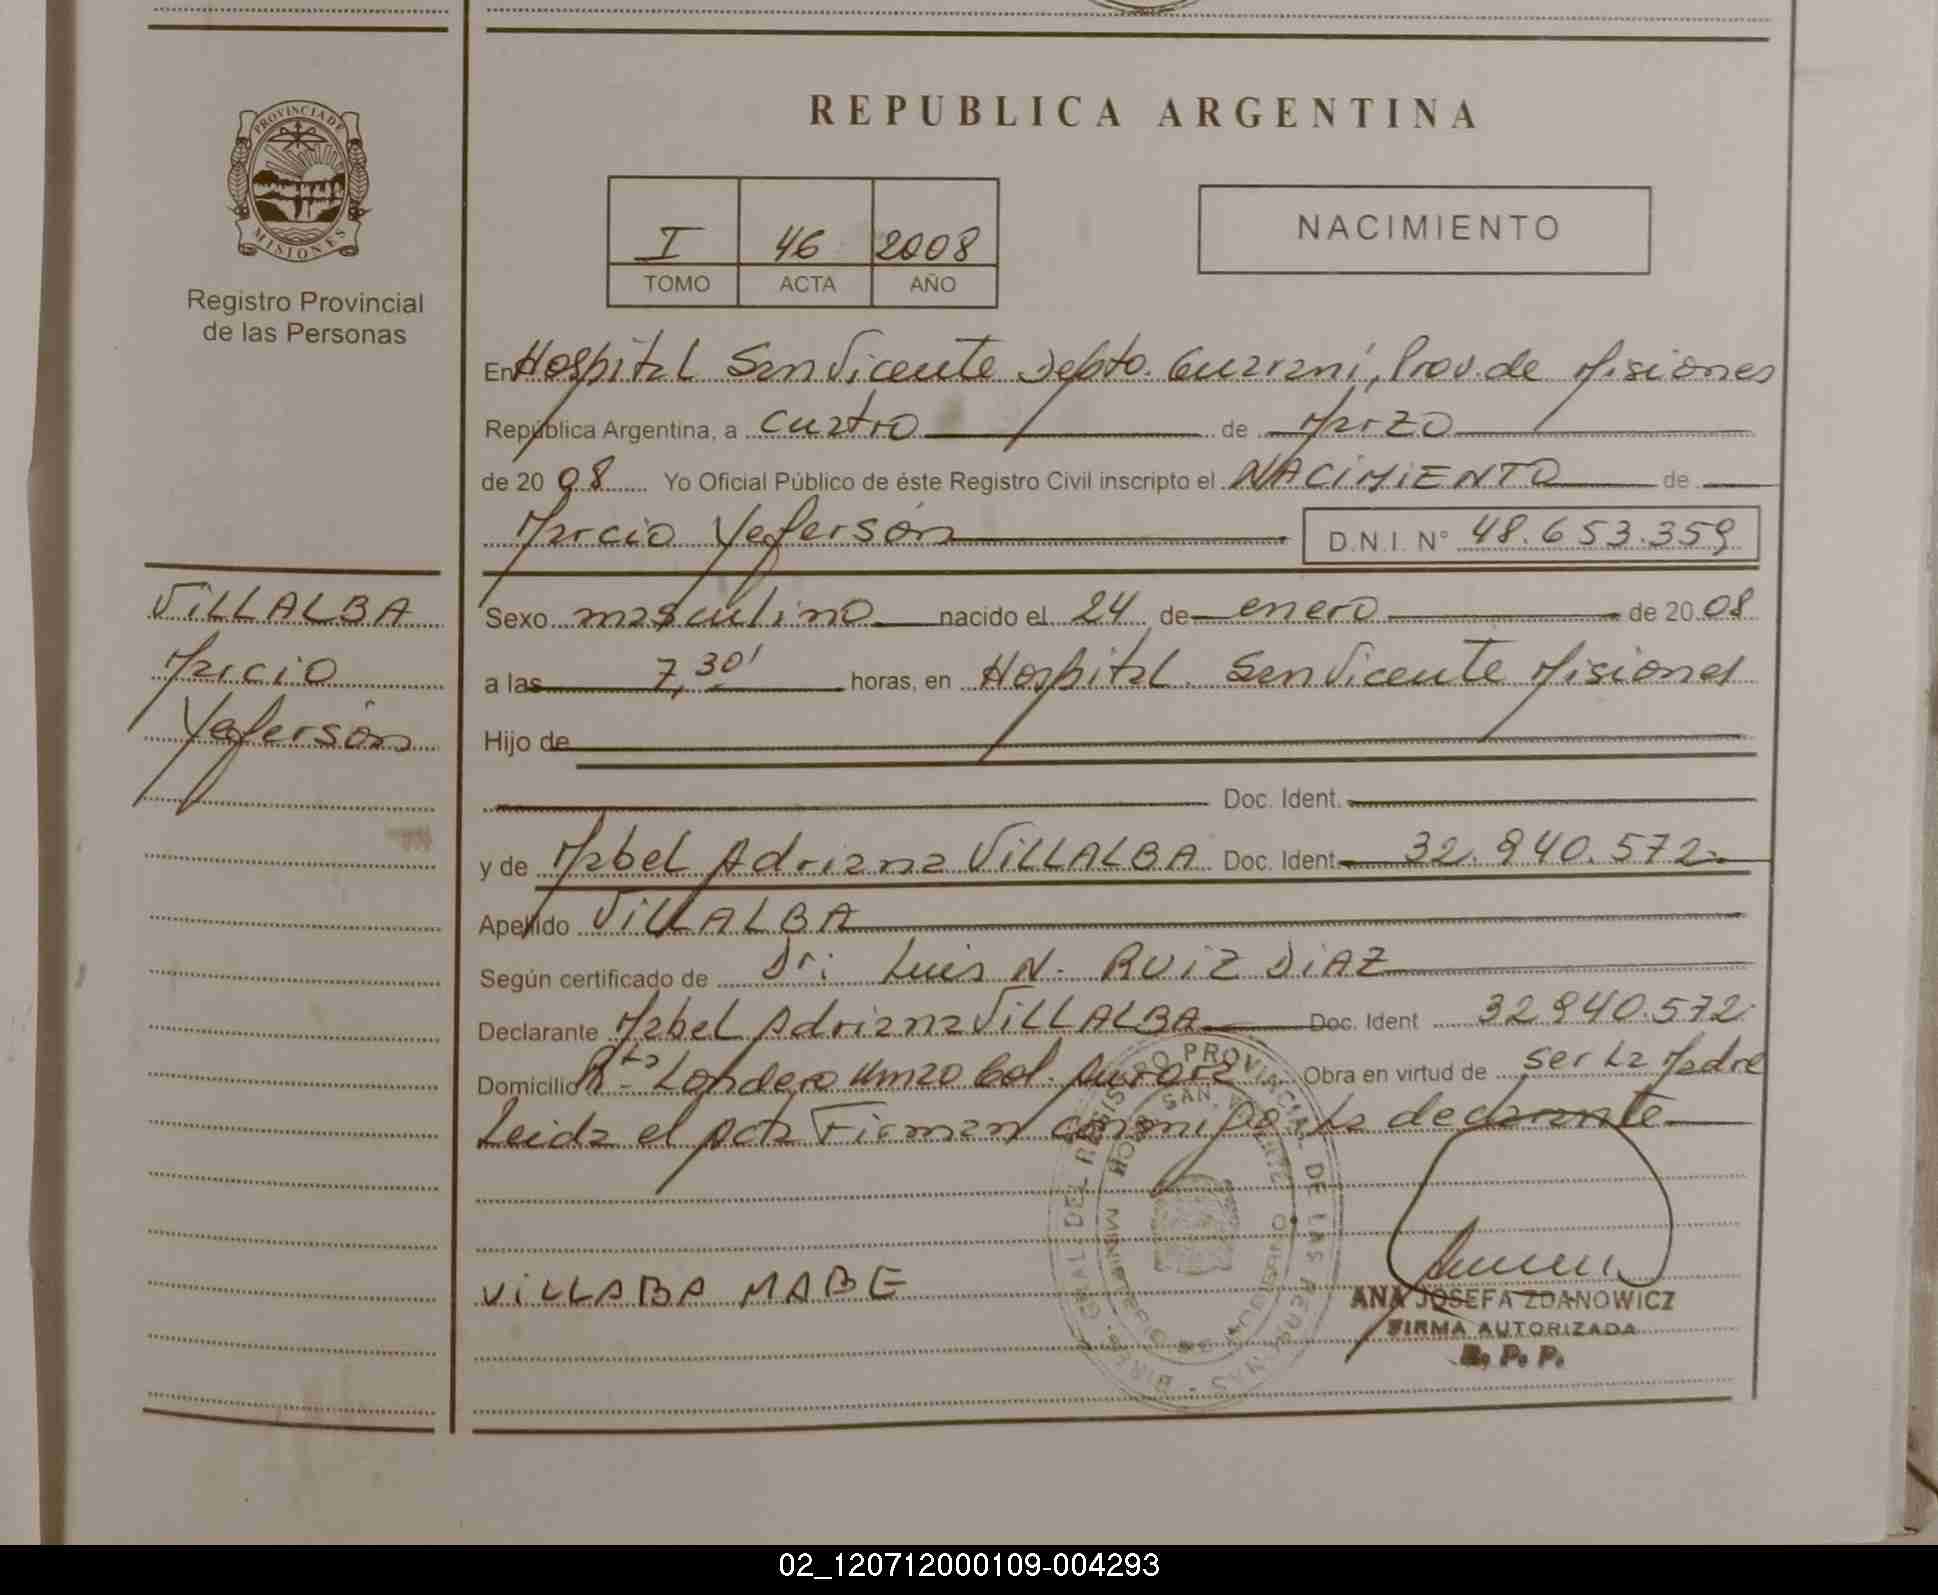 REPUBLICA ARGENTINA
PROVINCIA DE MISIONES
Registro Provincial
de las Personas
I 46 2008
TOMO ACTA AÑO
NACIMIENTO
En Hospital San Vicente Depto. Guaraní, Prov. de Misiones
República Argentina, a cuatro de Marzo
de 20 08 Yo Oficial Público de éste Registro Civil inscripto el NACIMIENTO de
Marcio Yeferson D.N.I. N° 48.653.359
VILLALBA
Marcio
Yeferson
Sexo masculino nacido el 24 de enero de 20 08
a las 7,30' horas, en Hospital San Vicente Misiones
Hijo de
Doc. Ident.
y de Mabel Adriana VILLALBA Doc. Ident. 32.940.572
Apellido VILLALBA
Según certificado de Dr: Luis N. RUIZ DIAZ
Declarante Mabel Adriana VILLALBA Doc. Ident 32.940.572
Domicilio Rta Londero Col. Aurora Obra en virtud de ser La Madre
Leida el Acta Firman conmigo La declarante
VILLABA MABE
REGISTRO PROVINCIAL DE LAS PERSONAS
HOSP. SAN VICENTE
MINISTERIO DE GOBIERNO
ANA JOSEFA ZDANOWICZ
FIRMA AUTORIZADA
R. P. P.
02_120712000109-004293